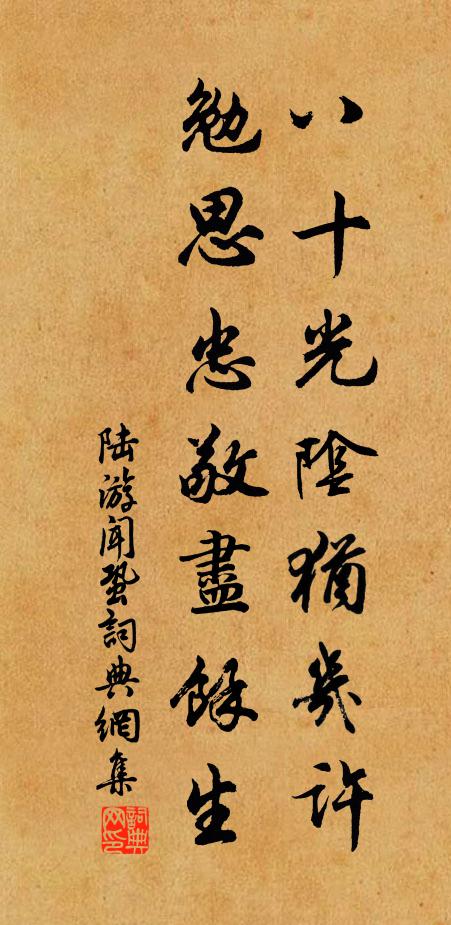 八十光陰猶幾許
勉思忠敬盡餘生
陆游闻蛩詞典網集
詞典网印